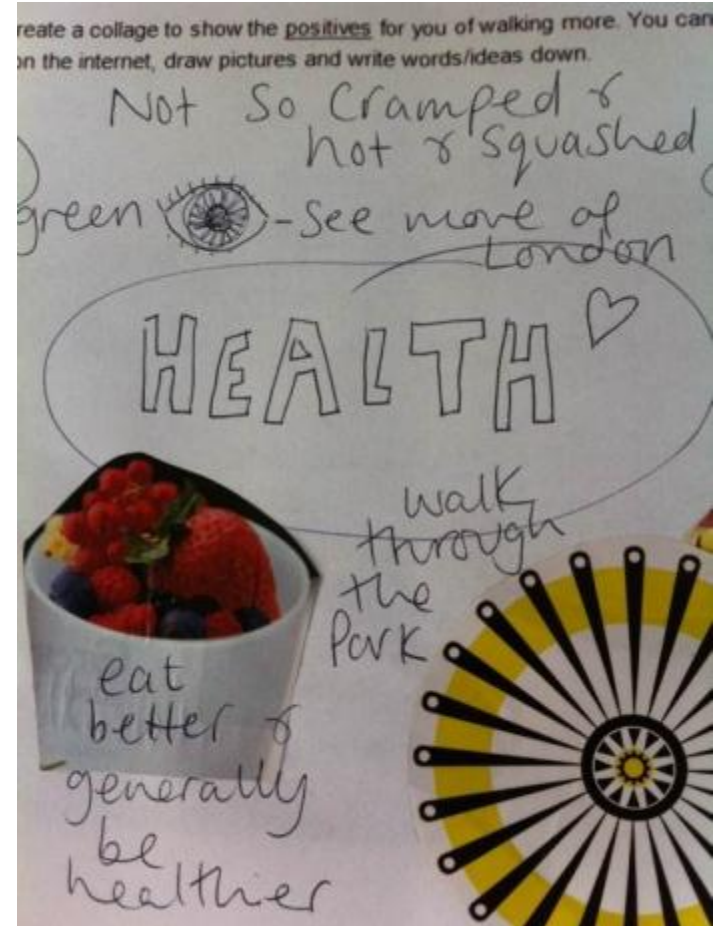 reate a collage to show the positives for you of walking more. You can
on the internet, draw pictures and write words/ideas down.
Not so cramped &
hot & squashed
green - see more of
London
HEALTH
walk
through
the
Park
eat
better &
generally
be
healthier